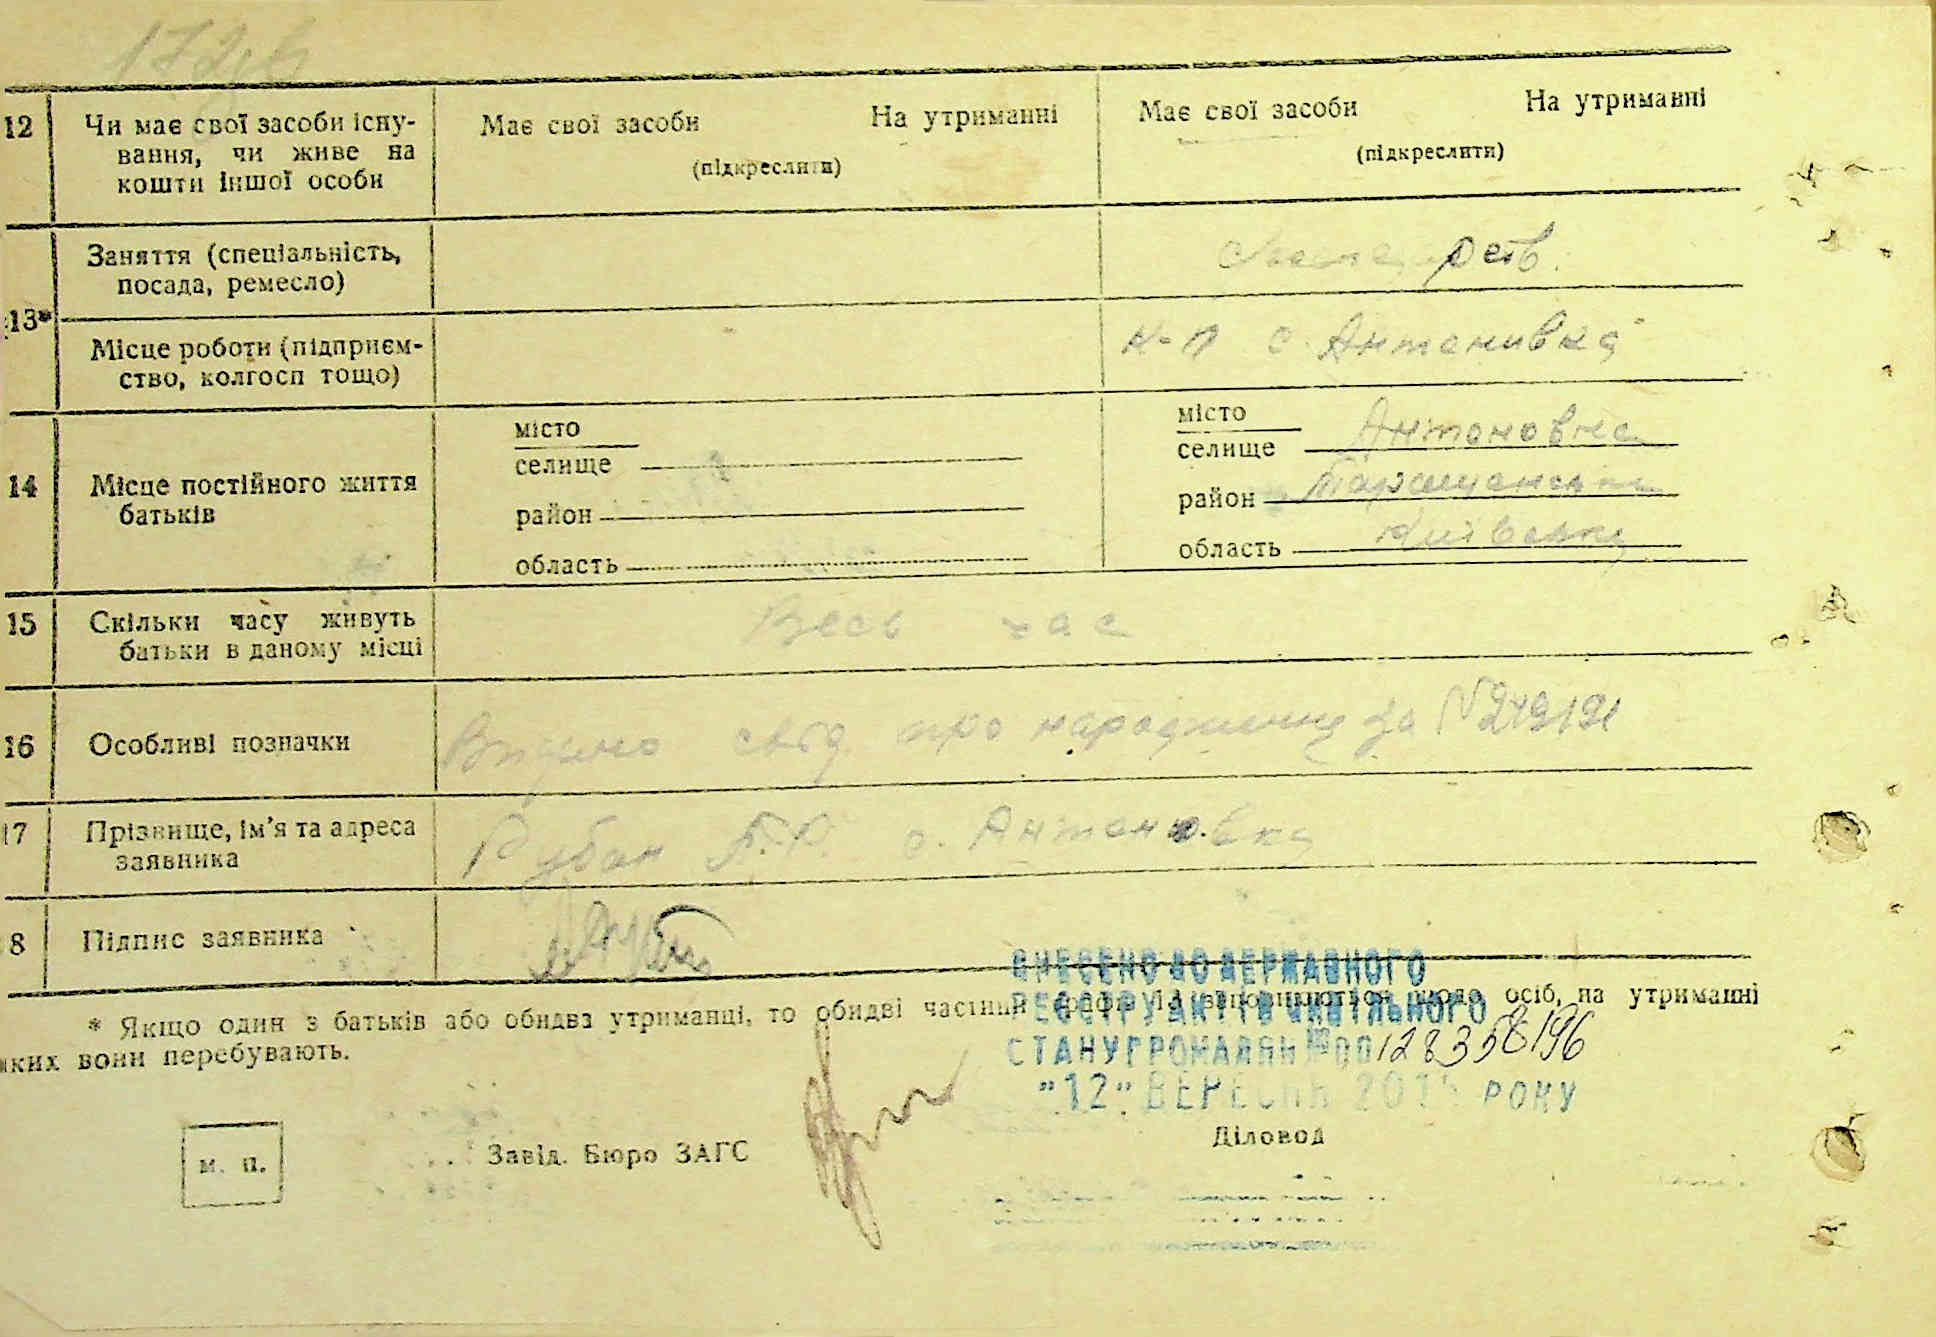 12 Чи має свої засоби існу-
вання, чи живе на
кошти іншої особи
Має свої засоби На утриманні
(підкреслити)
Має свої засоби На утриманні
(підкреслити)
13*
Заняття (спеціальність,
посада, ремесло)
Місце роботи (підприєм-
ство, колгосп тощо)
к-п с. Антонивка
14 Місце постійного життя
батьків
місто
селище
район
область
місто
селище Антоновка
район Таращанський
область Київська
15 Скільки часу живуть
батьки в даному місці
Весь час
16 Особливі позначки
Видано свід. про народження за №
17 Прізвище, ім'я та адреса
заявника
Рубан с. Антоновка
8 Підпис заявника
* Якщо один з батьків або обидва утриманці, то обидві частини графи заповнюються щодо осіб, на утриманні
яких вони перебувають.
ВНЕСЕНО ДО ДЕРЖАВНОГО
РЕЄСТРУ АКТІВ ЦИВІЛЬНОГО
СТАНУ ГРОМАДЯН № 00128358196
"12" ВЕРЕСНЯ РОКУ
м. п.
Завід. Бюро ЗАГС
Діловод